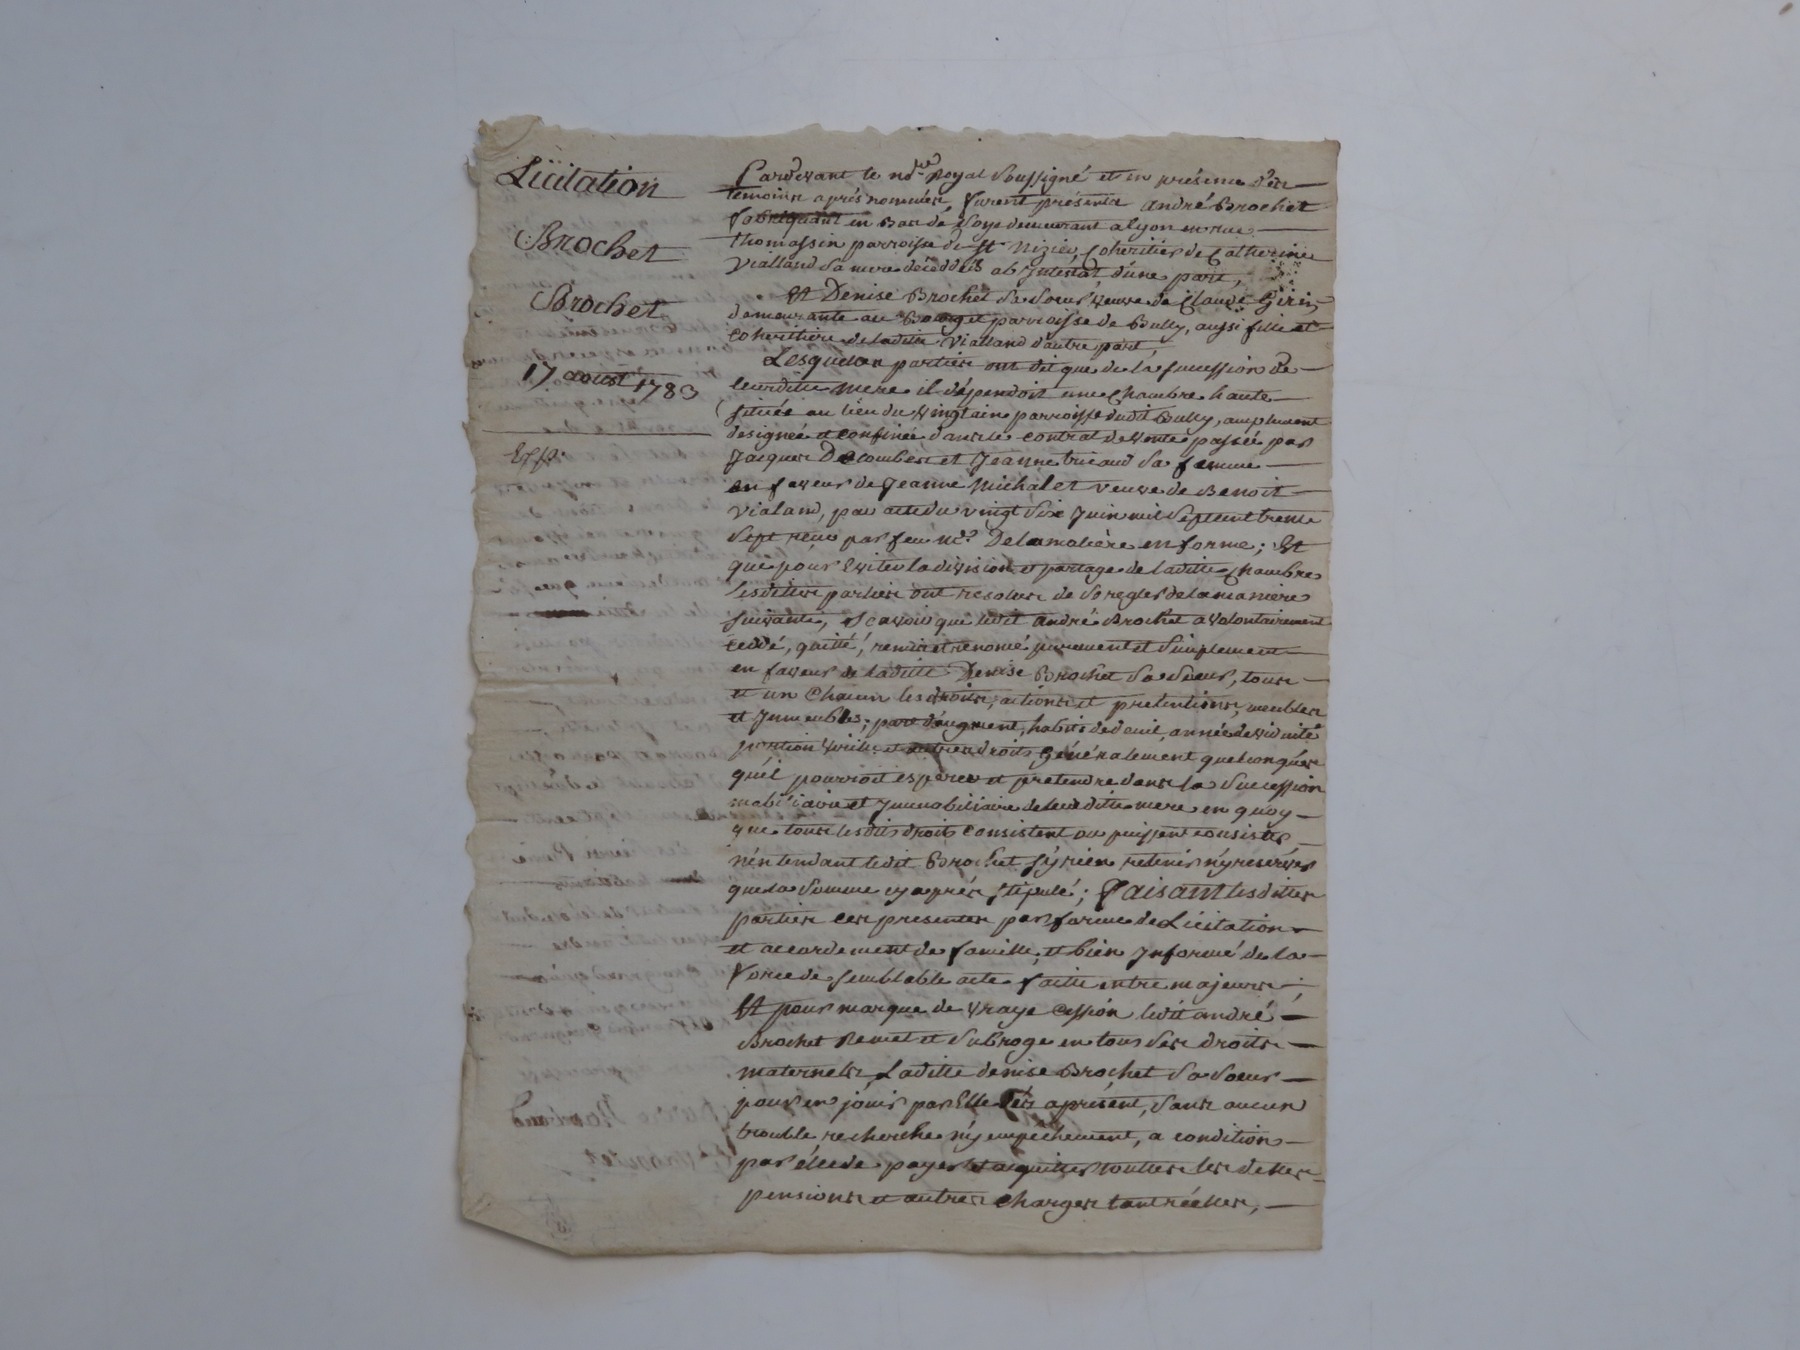 Licitation
Brochet
Brochet
17 aoust 1783
Exp.
Pardevant le no.re Royal soussigné et en présence des
temoins aprés nommés, furent présents andré Brochet
fabriquant en Bas de soye demeurant a lyon en rue
thomassin parroisse de st Nizier, coheritier de Catherine
Vialland sa mere décéddéé ab Intestat d'une part,
Et Denise Brochet sa soeur veuve de Claude Girin
demeurante au Bourg et parroisse de Bully, aussi fille et
coheritiere de laditte Vialland d'autre part,
Lesquelles parties ont dit que de la succession de
leurditte mere il dépendoit une chambre haute
située au lieu du vingtain parroisse dudit Bully, amplement
designeé et confinée dans le contrat de vente passée par
Jacques Decombes et Jeanne tricaud sa femme
en faveur de Jeanne Michalet veuve de Benoit
Vialand, par acte du vingt six Juin mil sept cent trente
sept reçu par feu me. Delamolière en forme; Et
que pour eviter la division et partage de laditte chambre
lesdittes parties ont resolus de se regler de la maniere
suivante, scavoir que ledit andré Brochet a volontairement
ceddé, quitté, remis et renoncé purement et simplement
en faveur de laditte Denise Brochet sa soeur, tous
et un chacun les droits, actions et pretentions, meubles
et Immeubles; part d'augment, habits de deuil, année de viduité
portion virille et autres droits généralement quelconques
qu'il pourroit esperer et pretendre dans la succession
mobiliaire et Immobiliaire de leurditte mere en quoy
que tous lesdits droits consistent ou puissent consister
n'entendant ledit Brochet s'y rien retenir n'y reserver
que la somme cy aprés stipulé; faisant lesdittes
parties ces presentes par forme de Licitation
et accordement de famille, et bien Informé de la
force de semblable acte faitte entre majeurs;
Et pour marque de vraye cession ledit andré
Brochet Remet et subroge en tous ses droits
maternels, Laditte denise Brochet sa soeur
pour en jouir par Elle dés aprésent, sans aucun
trouble, recherche n'y empéchement, a condition
par elle de payer et acquitter touttes les dettes
pensions et autres charges tant réelles,